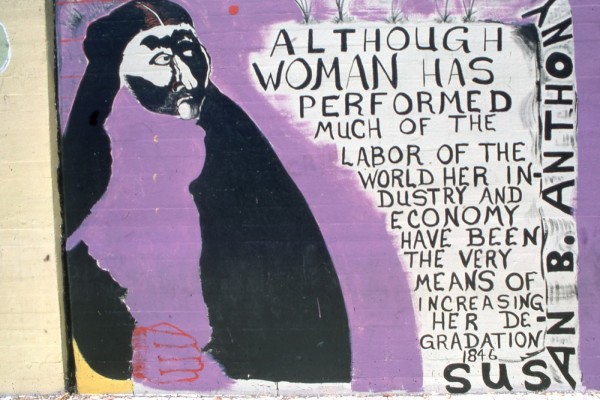 ALTHOUGH
WOMAN HAS
PERFORMED
MUCH OF THE
LABOR OF THE
WORLD HER IN-
DUSTRY AND
ECONOMY
HAVE BEEN
THE VERY
MEANS OF
INCREASING
HER DE-
GRADATION
1846
SUSAN B. ANTHONY